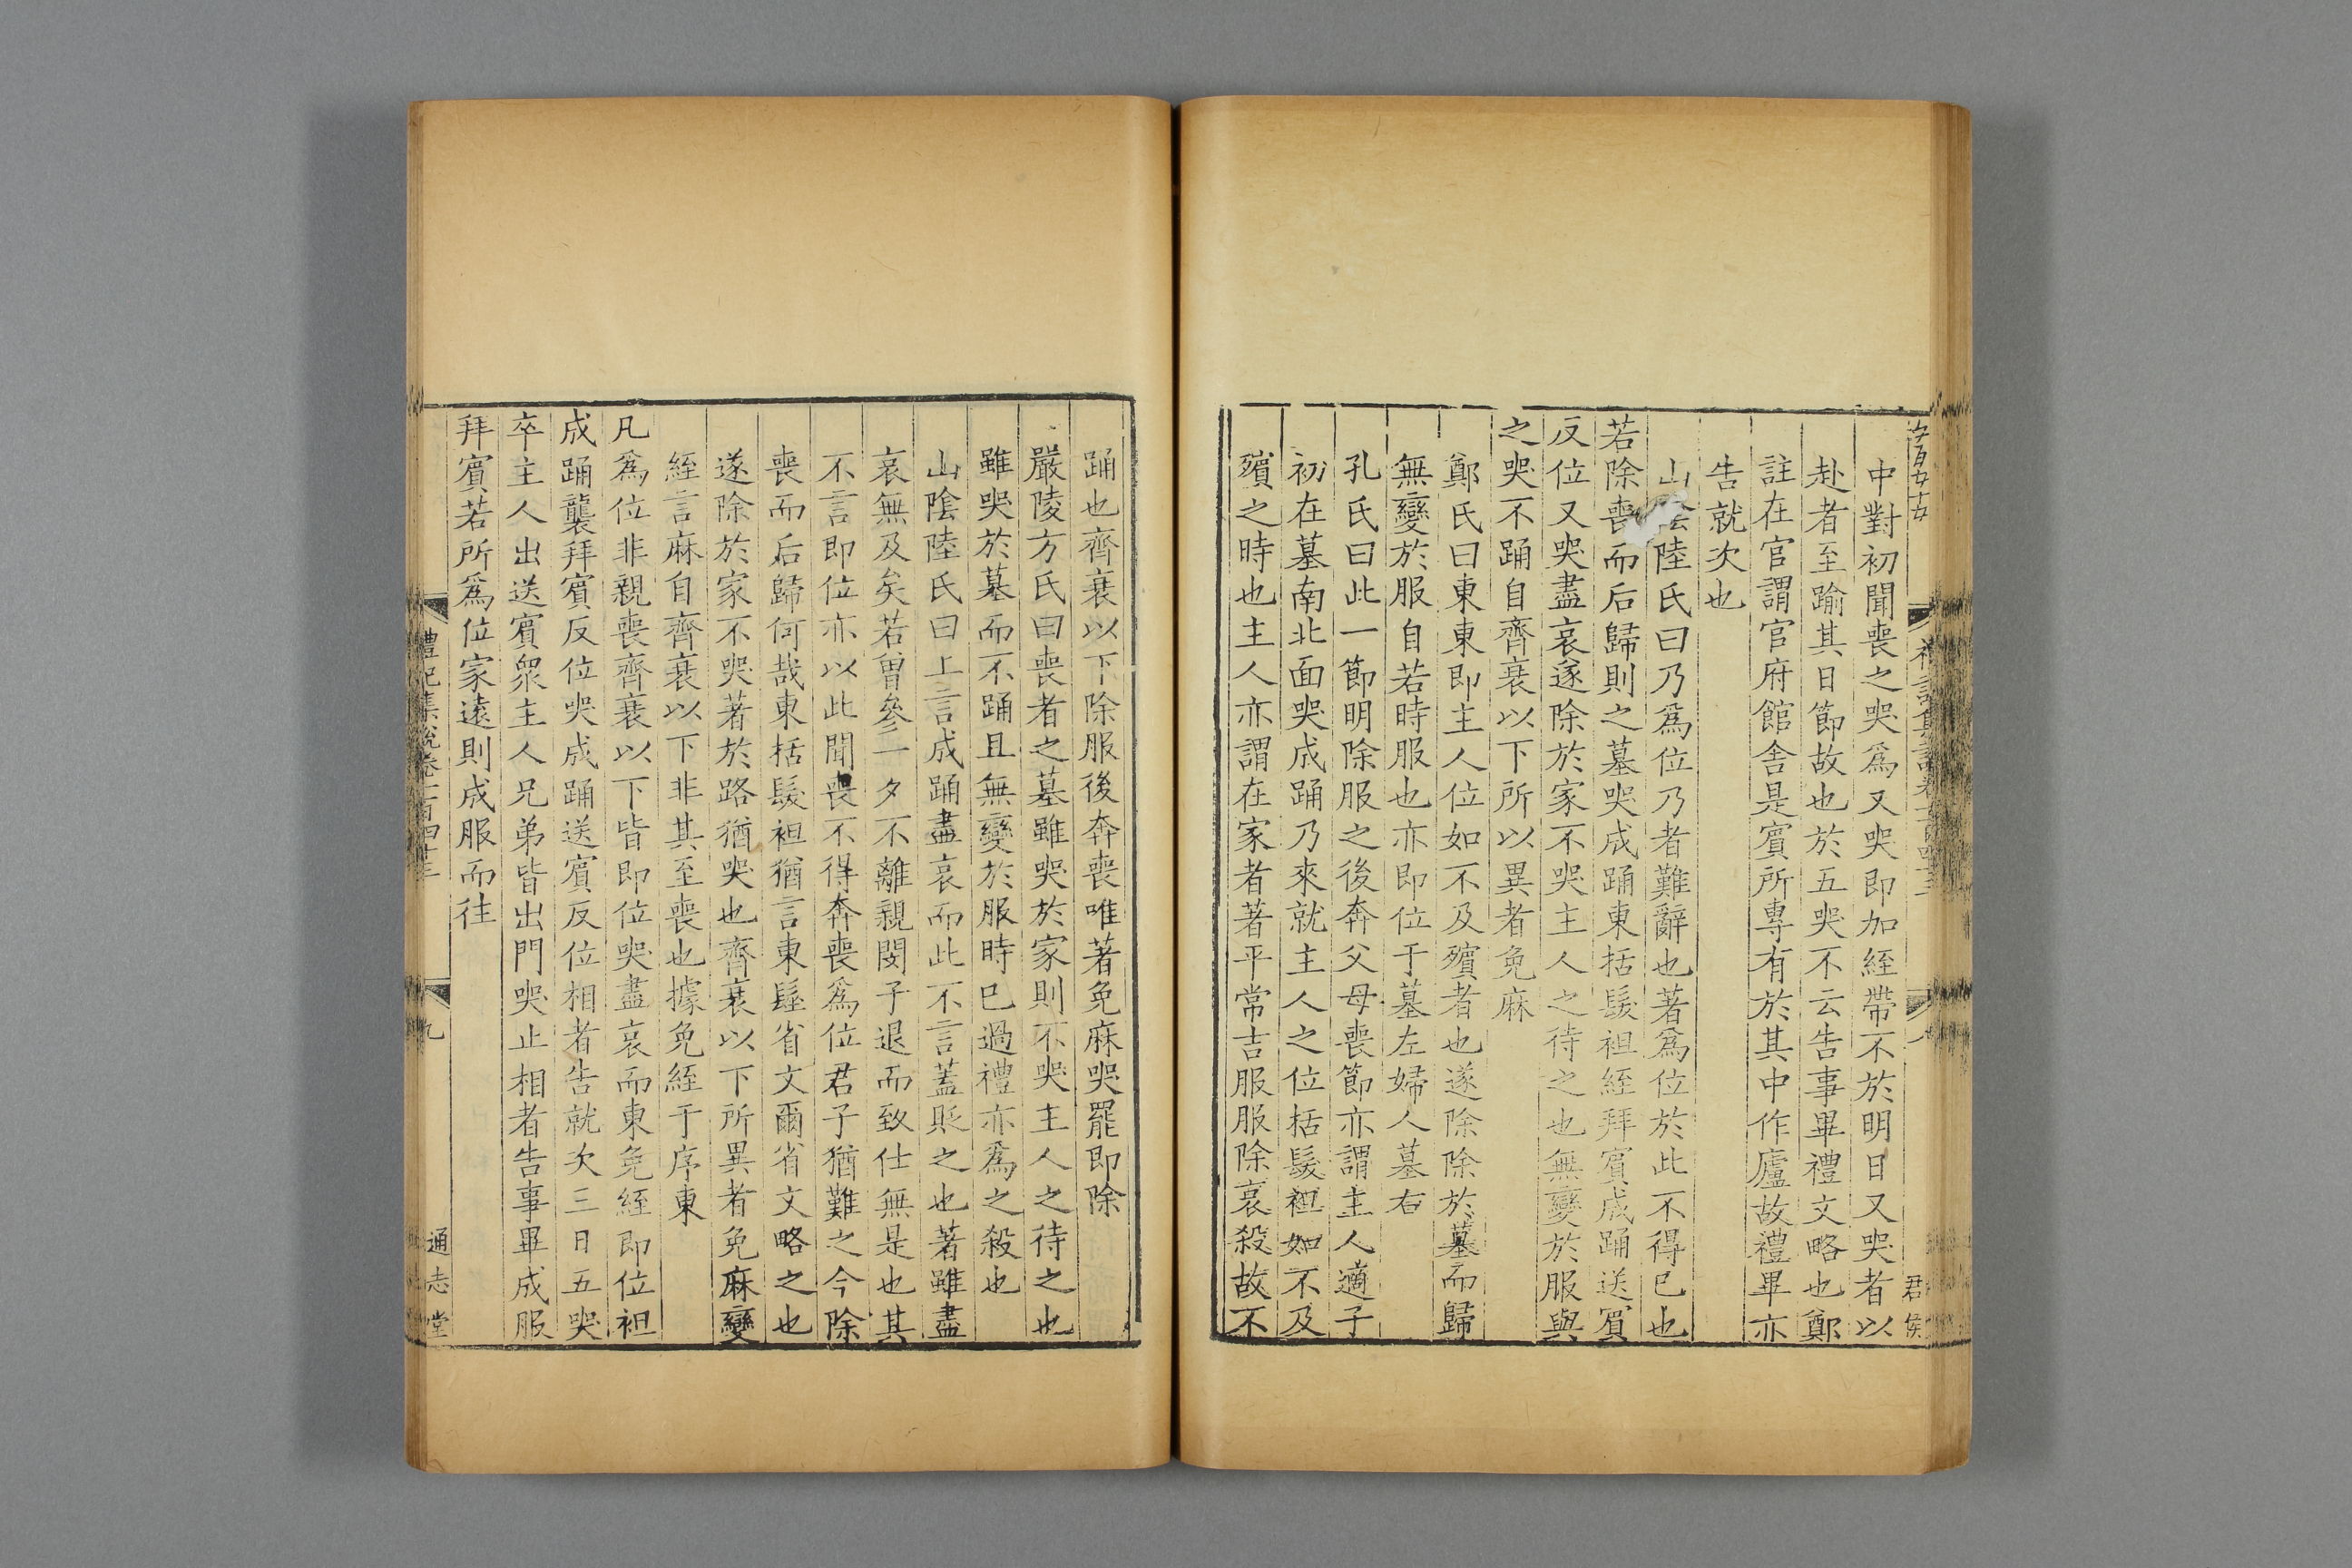 中對初聞喪之哭爲又哭即加絰帶不於明日又哭者以
赴者至踰其日節故也於五哭不云告事畢禮文略也鄭
註在官謂官府館舍是賔所專有於其中作廬故禮畢亦
告就次也
山陸氏曰乃爲位乃者難辭也著爲位於此不得已也
若除喪而后歸則之墓哭成踊東括髮袒絰拜賔成踊送賔
反位又哭盡哀遂除於家不哭主人之待之也無變於服與
之哭不踊自齊衰以下所以異者免麻
鄭氏曰東東即主人位如不及殯者也遂除除於墓而歸
無變於服自若時服也亦即位于墓左婦人墓右
孔氏曰此一節明除服之後奔父母喪節亦謂主人適子
初在墓南北面哭成踊乃來就主人之位括髮袒如不及
殯之時也主人亦謂在家者著平常吉服服除哀殺故不
八
君侯
踊也齊衰以下除服後奔喪唯著免麻哭罷即除
嚴陵方氏曰喪者之墓雖哭於家則不哭主人之待之也
雖哭於墓而不踊且無變於服時已過禮亦爲之殺也
山陰陸氏曰上言成踊盡哀而此不言蓋貶之也著雖盡
哀無及矣若曾參一夕不離親閔子退而致仕無是也其
不言即位亦以此聞喪不得奔喪爲位君子猶難之今除
喪而后歸何哉東括髮袒猶言東髽省文爾省文略之也
遂除於家不哭著於路猶哭也齊衰以下所異者免麻變
絰言麻自齊衰以下非其至喪也據免絰于序東
凡爲位非親喪齊衰以下皆即位哭盡哀而東免絰即位袒
成踊襲拜賔反位哭成踊送賔反位相者告就次三日五哭
卒主人出送賔衆主人兄弟皆出門哭止相者告事畢成服
拜賔若所爲位家遠則成服而往
禮記集說卷一百四十三
九
通志堂